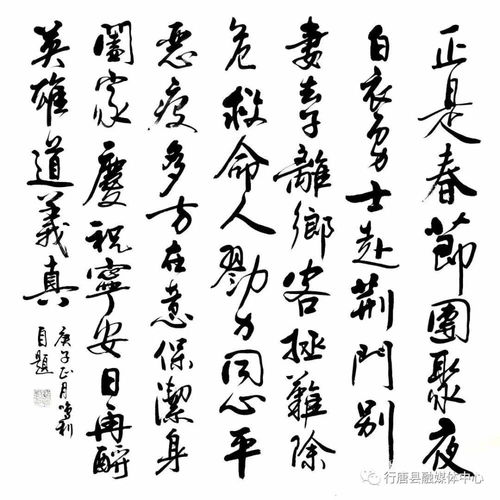 正是春節團聚夜
白衣勇士赴荆門别
妻去子離鄉客拯難除
危救命人勠力同心平
惡疫多方在意保潔身
闔家慶祝寧安日再
英雄道義真
庚子正月
自題
行唐县融媒体中心